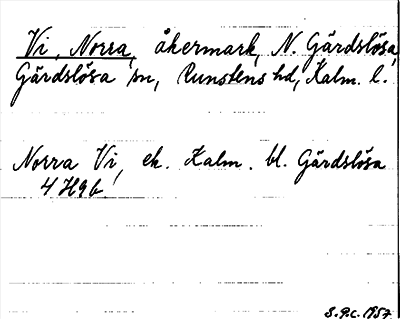 Vi, Norra, åkermark, N. Gärdslösa,
Gärdslösa sn, Runstens hd, Kalm. l.
Norra Vi, ek. Kalm. bl. Gärdslösa
4 H9b.
S.P.C. 1957